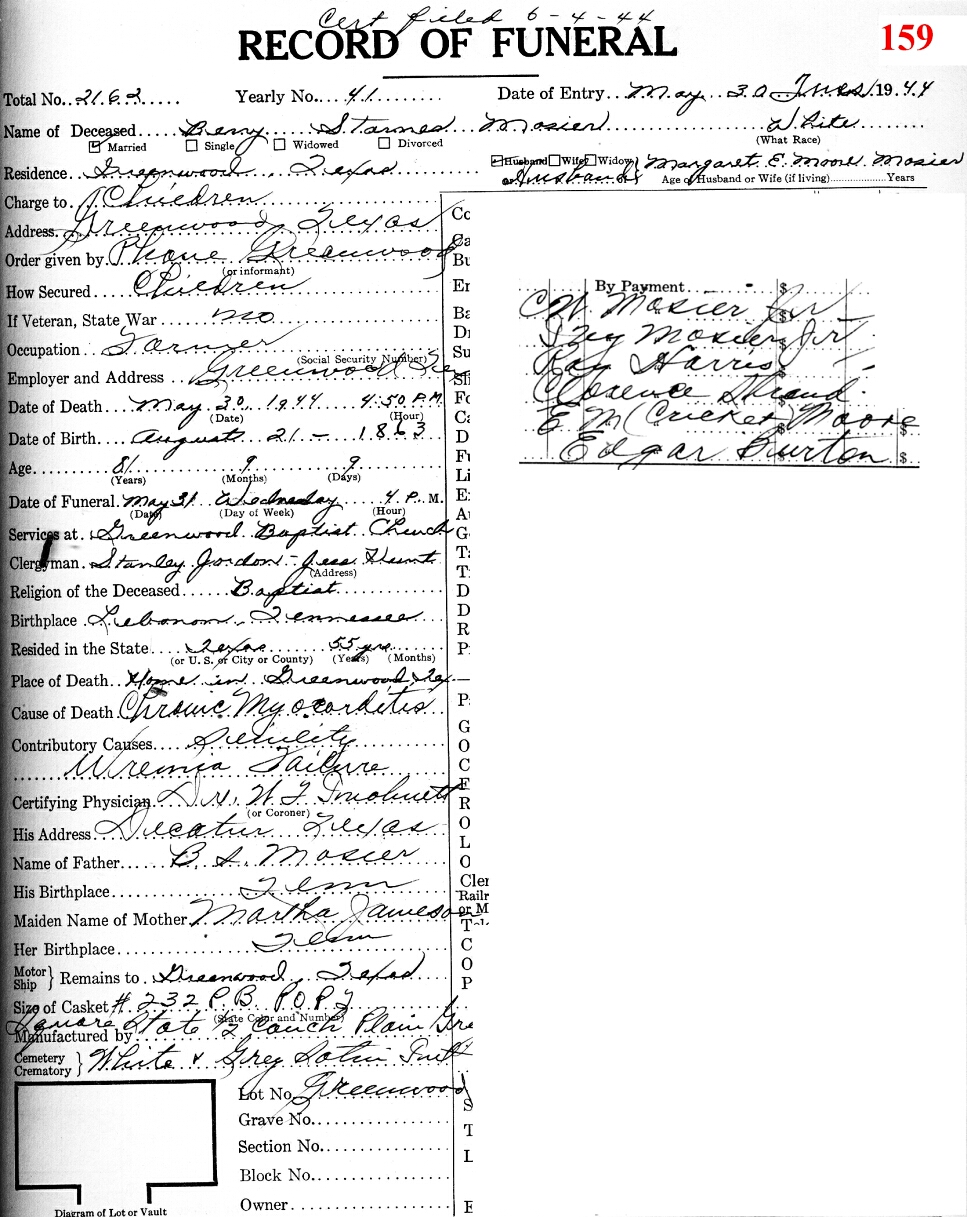 Cert filed 6-4-44
RECORD OF FUNERAL
159
Total No. 2163 Yearly No. 41 Date of Entry May 30 Tues 1944
Name of Deceased Berry Starnes Mosier White
Married Single Widowed Divorced (What Race)
Residence Greenwood Texas Husband Wife Widow Margaret E. Moore Mosier
or Husband of Age of Husband or Wife (if living) Years
Charge to Children
Address Greenwood, Texas
Order given by Phone Greenwood
(or informant)
How Secured Children
If Veteran, State War no
Occupation Farmer
(Social Security Number)
Employer and Address Greenwood
Date of Death May 30, 1944 4:50 P.M.
(Date) (Hour)
Date of Birth August 21 - 1863
Age 81 9 9
(Years) (Months) (Days)
Date of Funeral May 31 Wednesday 4 P.M.
(Date) (Day of Week) (Hour)
Services at Greenwood Baptist Church
Clergyman Stanley Jordon - Jess Hunt
(Address)
Religion of the Deceased Baptist
Birthplace Lebanon, Tennessee
Resided in the State Texas 55 yrs
(or U. S. or City or County) (Years) (Months)
Place of Death Home in Greenwood Tex
Cause of Death Chronic Myocarditis
Contributory Causes Senility
Uremia Failure
Certifying Physician Dr. W
(or Coroner)
His Address Decatur Texas
Name of Father B. S. Mosier
His Birthplace Tenn
Maiden Name of Mother Martha Jameso
Her Birthplace Tenn
Motor Ship } Remains to Greenwood, Texas
Size of Casket # 232 P.B. P.O.P.
(State Color and Number)
Square State 1/2 Couch Plain Gre
Manufactured by
Cemetery Crematory } White & Grey Satin
Lot No. Greenwood
Grave No.
Section No.
Block No.
Owner
Diagram of Lot or Vault
By Payment $
C W Mosier Jr
Ivy Mosier Jr
Ray Harris
Clarence
E M (Cricket) Moore $
Edgar Burton $